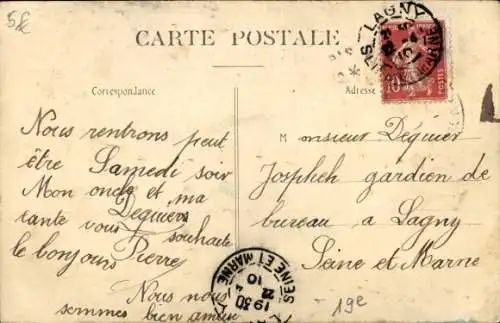 5k
CARTE POSTALE
LAGNY
SEINE ET MARNE
10
POSTES
Correspondance
Adresse
Nous rentrons peut
être Samedi soir
Mon oncle et ma
tante vous souhaite
Deguiers
le bonjours Pierre
Nous nous
sommes bien amuser
Monsieur Déguier
Jospheh gardien de
bureau a Lagny
Seine et Marne
SEINE ET MARNE
1930
22
10
19e